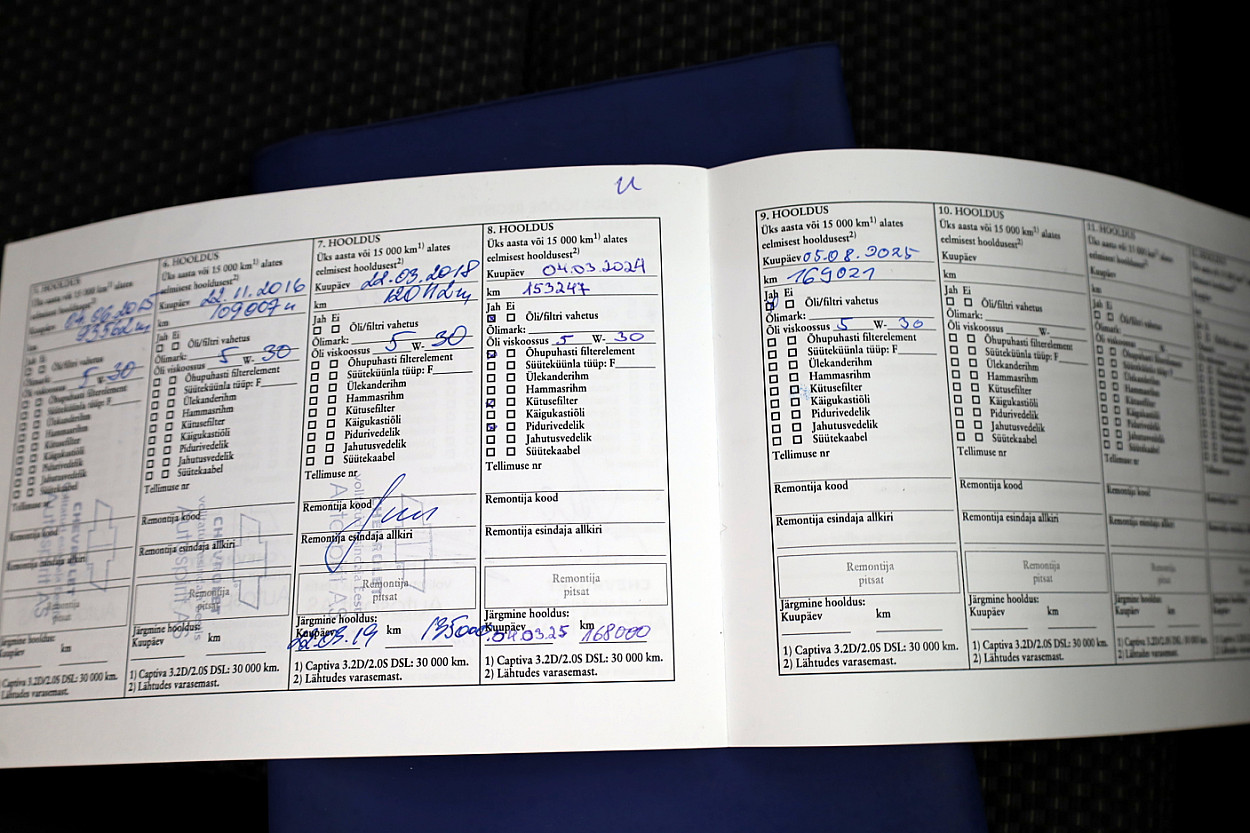 u
5. HOOLDUS
Üks aasta või 15 000 km1) alates
eelmisest hooldusest2)
Kuupäev 04.06.2015
km 93562
Jah Ei
Õli/filtri vahetus
Õlimark:
Õli viskoossus 5 W- 30
Õhupuhasti filterelement
Süüteküünla tüüp: F
Ülekanderihm
Hammasrihm
Kütusefilter
Käigukastiõli
Pidurivedelik
Jahutusvedelik
Süütekaabel
Tellimuse nr
Remontija kood
Remontija esindaja allkiri
CHEVROLET
AS
Järgmine hooldus:
Kuupäev km
1) Captiva 3.2D/2.0S DSL: 30 000 km.
2) Lähtudes varasemast.
6. HOOLDUS
Üks aasta või 15 000 km1) alates
eelmisest hooldusest2)
Kuupäev 22.11.2016
km 109007
Jah Ei
Õli/filtri vahetus
Õlimark:
Õli viskoossus 5 W- 30
Õhupuhasti filterelement
Süüteküünla tüüp: F
Ülekanderihm
Hammasrihm
Kütusefilter
Käigukastiõli
Pidurivedelik
Jahutusvedelik
Süütekaabel
Tellimuse nr
Remontija kood
Remontija esindaja allkiri
CHEVROLET
AS
Remontija
pitsat
Järgmine hooldus:
Kuupäev km
1) Captiva 3.2D/2.0S DSL: 30 000 km.
2) Lähtudes varasemast.
7. HOOLDUS
Üks aasta või 15 000 km1) alates
eelmisest hooldusest2)
Kuupäev 22.03.2018
km 120112
Jah Ei
Õli/filtri vahetus
Õlimark:
Õli viskoossus 5 W- 30
Õhupuhasti filterelement
Süüteküünla tüüp: F
Ülekanderihm
Hammasrihm
Kütusefilter
Käigukastiõli
Pidurivedelik
Jahutusvedelik
Süütekaabel
Tellimuse nr
Remontija kood
Remontija esindaja allkiri
Remontija
pitsat
Järgmine hooldus:
Kuupäev 22.03.19 km 135000
1) Captiva 3.2D/2.0S DSL: 30 000 km.
2) Lähtudes varasemast.
8. HOOLDUS
Üks aasta või 15 000 km1) alates
eelmisest hooldusest2)
Kuupäev 04.03.2024
km 153247
Jah Ei
Õli/filtri vahetus
Õlimark:
Õli viskoossus 5 W- 30
Õhupuhasti filterelement
Süüteküünla tüüp: F
Ülekanderihm
Hammasrihm
Kütusefilter
Käigukastiõli
Pidurivedelik
Jahutusvedelik
Süütekaabel
Tellimuse nr
Remontija kood
Remontija esindaja allkiri
Remontija
pitsat
Järgmine hooldus:
Kuupäev 04.03.25 km 168000
1) Captiva 3.2D/2.0S DSL: 30 000 km.
2) Lähtudes varasemast.
9. HOOLDUS
Üks aasta või 15 000 km1) alates
eelmisest hooldusest2)
Kuupäev 05.08.2025
km 169021
Jah Ei
Õli/filtri vahetus
Õlimark:
Õli viskoossus 5 W- 30
Õhupuhasti filterelement
Süüteküünla tüüp: F
Ülekanderihm
Hammasrihm
Kütusefilter
Käigukastiõli
Pidurivedelik
Jahutusvedelik
Süütekaabel
Tellimuse nr
Remontija kood
Remontija esindaja allkiri
Remontija
pitsat
Järgmine hooldus:
Kuupäev km
1) Captiva 3.2D/2.0S DSL: 30 000 km.
2) Lähtudes varasemast.
10. HOOLDUS
Üks aasta või 15 000 km1) alates
eelmisest hooldusest2)
Kuupäev
km
Jah Ei
Õli/filtri vahetus
Õlimark:
Õli viskoossus W-
Õhupuhasti filterelement
Süüteküünla tüüp: F
Ülekanderihm
Hammasrihm
Kütusefilter
Käigukastiõli
Pidurivedelik
Jahutusvedelik
Süütekaabel
Tellimuse nr
Remontija kood
Remontija esindaja allkiri
Remontija
pitsat
Järgmine hooldus:
Kuupäev km
1) Captiva 3.2D/2.0S DSL: 30 000 km.
2) Lähtudes varasemast.
11. HOOLDUS
Üks aasta või 15 000 km1) alates
eelmisest hooldusest2)
Kuupäev
km
Jah Ei
Õli/filtri vahetus
Õlimark:
Õli viskoossus
Õhupuhasti filterelement
Süüteküünla tüüp: F
Ülekanderihm
Hammasrihm
Kütusefilter
Käigukastiõli
Pidurivedelik
Jahutusvedelik
Süütekaabel
Tellimuse nr
Remontija kood
Remontija esindaja allkiri
Remontija
pitsat
Järgmine hooldus:
Kuupäev km
1) Captiva 3.2D/2.0S DSL: 30 000 km.
2) Lähtudes varasemast.